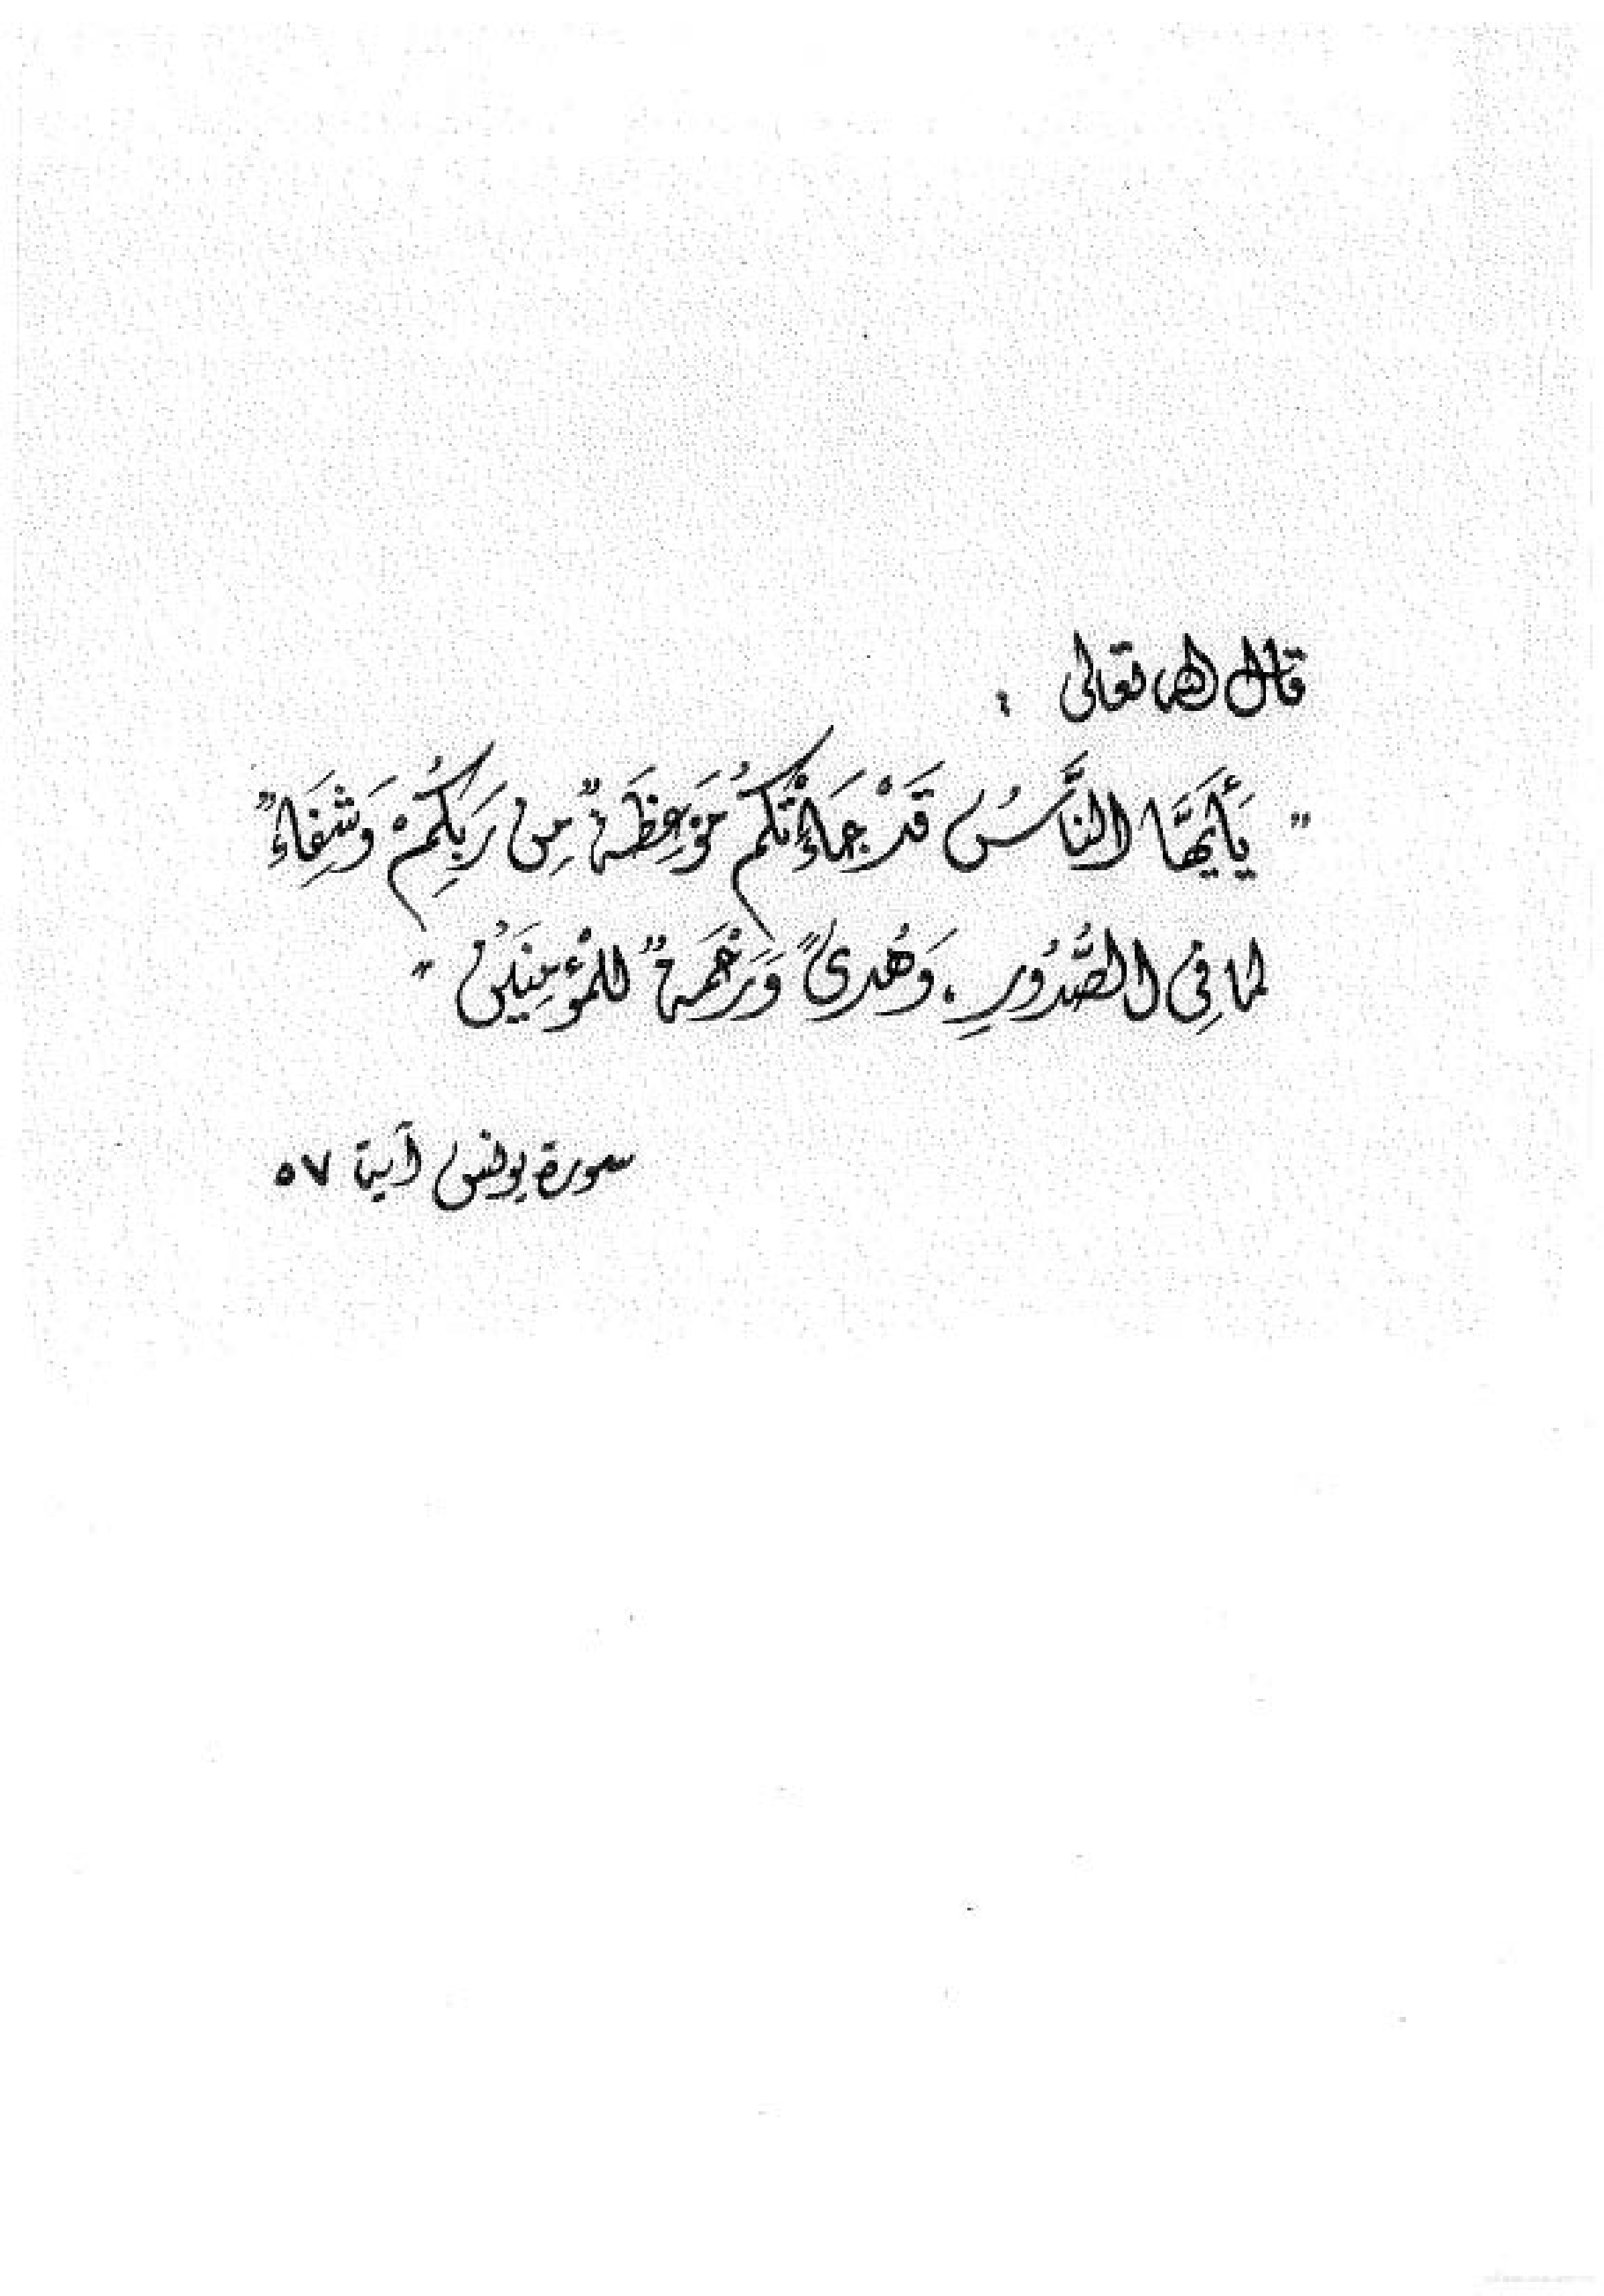 قال الله تعالى :
" يَأَيُّهَا النَّاسُ قَدْ جَاءَتْكُمْ مَوْعِظَةٌ مِن رَبِكُمْ وَشِفَاءٌ
لما فِى الصُّدُورِ . وَهُدىً وَرَحْمَةٌ للمُؤْمِنِينَ "
سورة يونس آية ٥٧